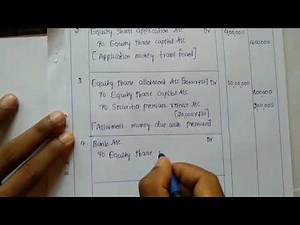 2 Equity share application A/c Dr 4,00,000
To Equity share capital A/c 4,00,000
[Application money transferred]
3 Equity share allotment A/c Dr 10,00,000
To Equity share capital A/c 800000
To Securities premium reserve A/c
[Allotment money due with premium]
4. Bank A/c Dr
To Equity share